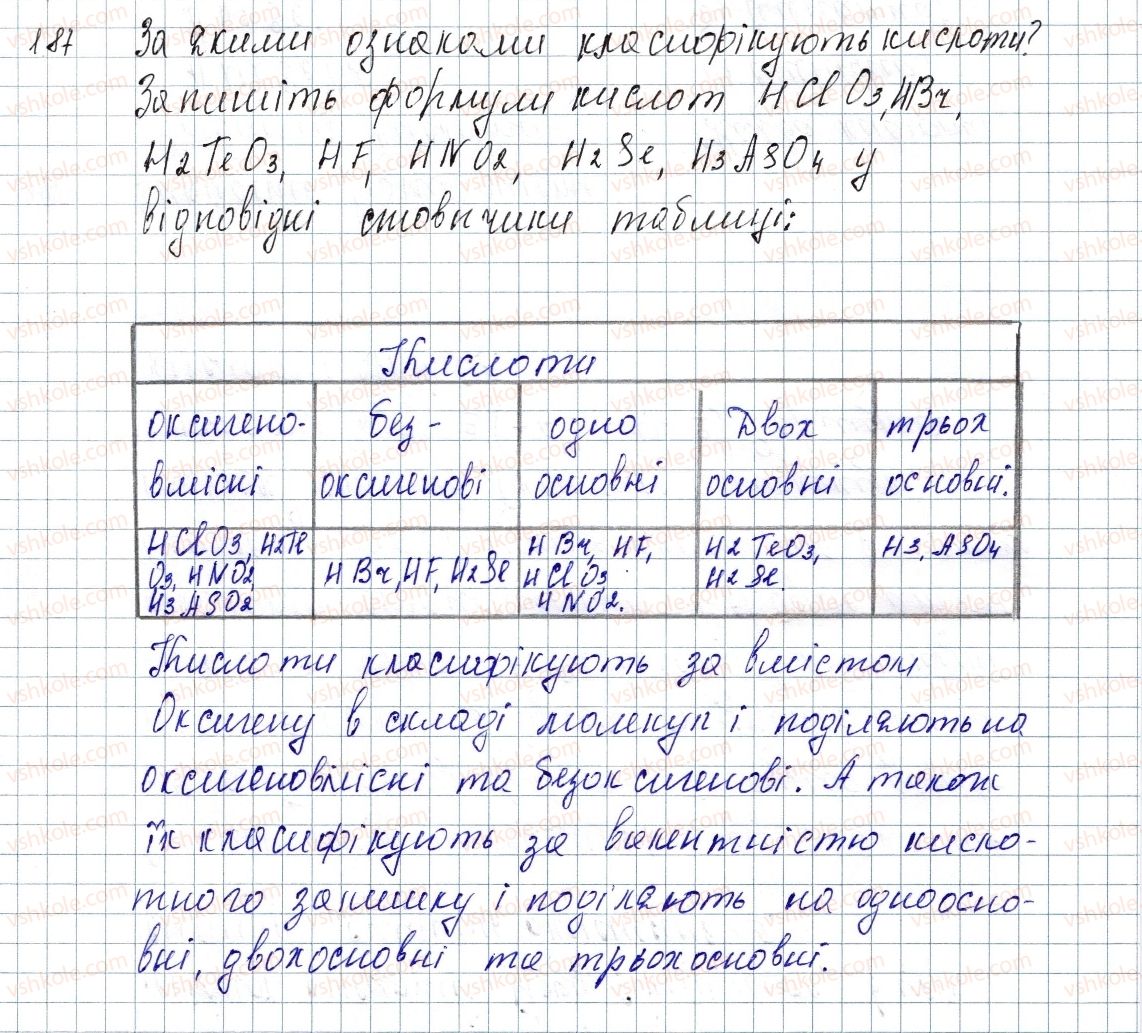 187 За якими ознаками класифікують кислоти?
Запишіть формули кислот HClO3, HBr,
H2TeO3, HF, HNO2, H2Se, H3ASO4 у
відповідні стовпчики таблиці:
Кислоти
оксигено-
вмісні
без-
оксигенові
одно
основні
Двох
основні
трьох
основні.
HClO3, H2Te
O3, HNO2,
H3ASO2
HBr, HF, H2Se
HBr, HF,
HClO3,
HNO2.
H2TeO3,
H2Se.
H3, ASO4
Кислоти класифікують за вмістом
Оксигену в складі молекул і поділяють на
оксигеновмісні та безоксигенові. А також
їх класифікують за валентністю кисло-
тного залишку і поділяють на одноосно-
вні, двохосновні та трьохосновні.
vshkole.com